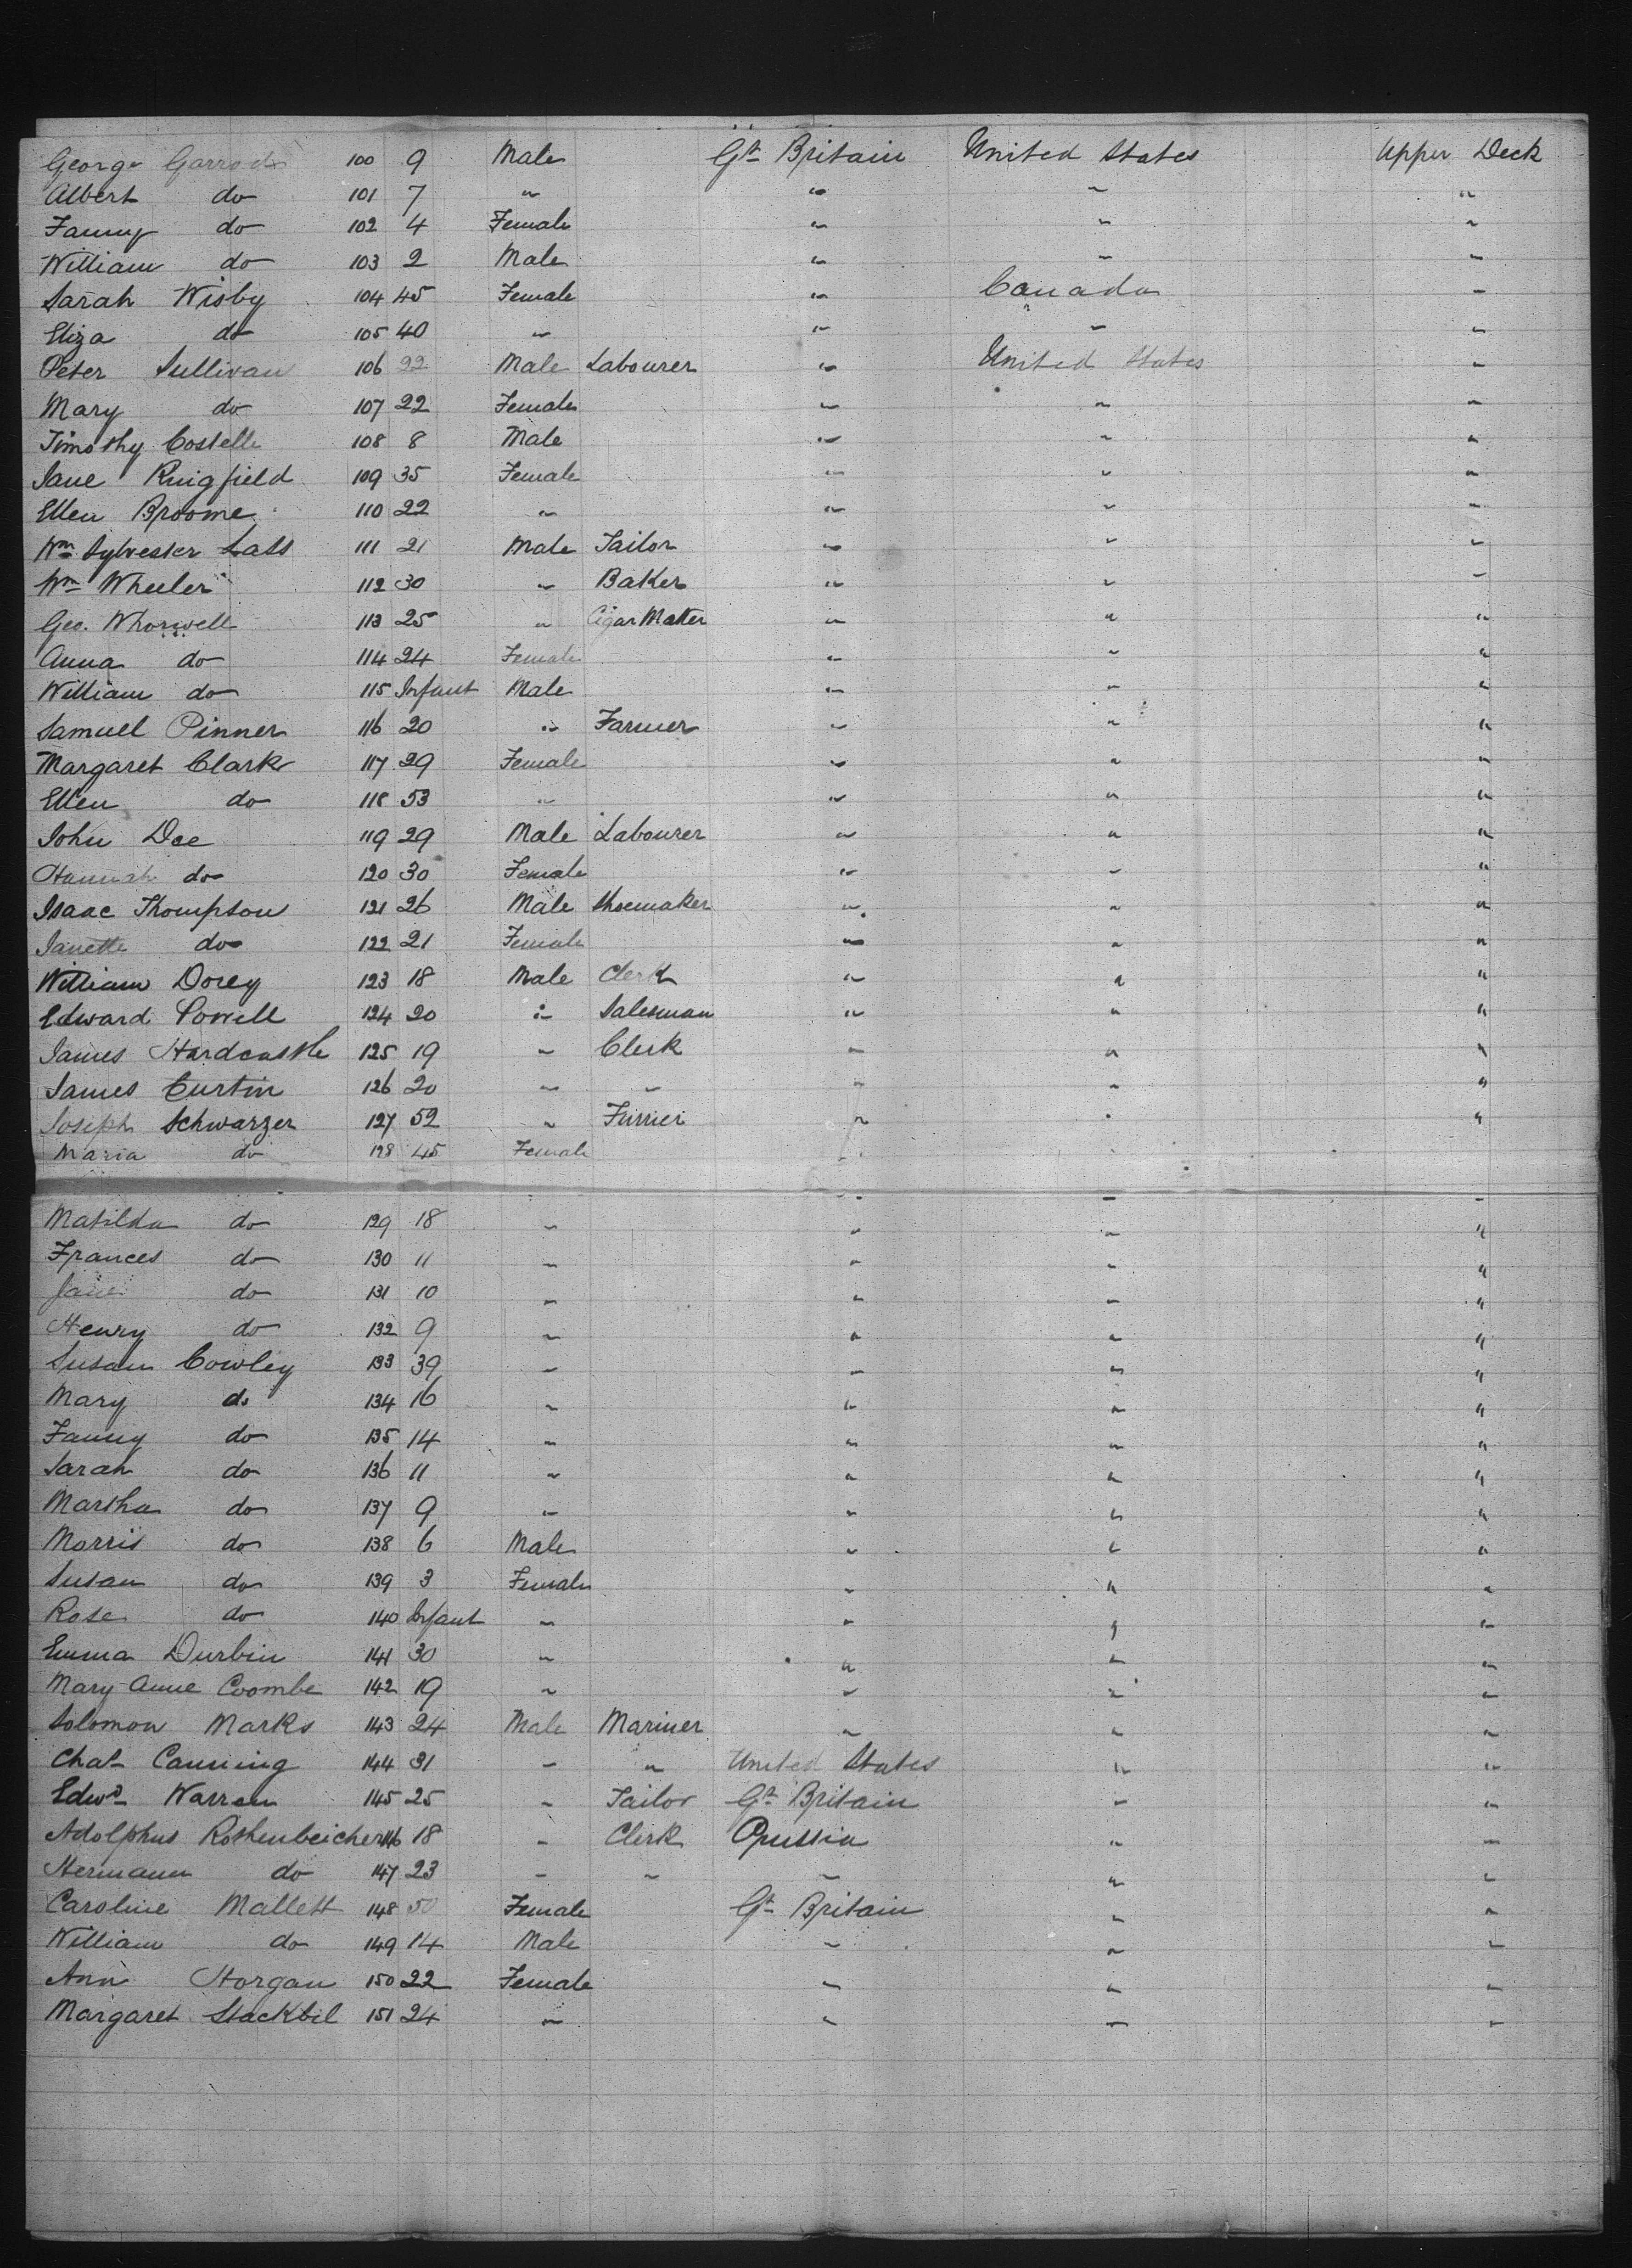 George Garrod 100 9 Male Gt Britain United States Upper Deck
Albert do 101 7 " " " "
Fanny do 102 4 Female " " "
William do 103 2 Male " " "
Sarah Wisby 104 45 Female " Canada "
Eliza do 105 40 " " " "
Peter Sullivan 106 22 Male Labourer " United States "
Mary do 107 22 Female " " "
Timothy Costelle 108 8 Male " " "
Jane Ringfield 109 35 Female " " "
Ellen Broome 110 22 " " " "
Wm Sylvester Lass 111 21 Male Tailor " " "
Wm Wheeler 112 30 " Baker " " "
Geo. Whorwell 113 25 " Cigar Maker " " "
Anna do 114 24 Female " " "
William do 115 Infant Male " " "
Samuel Pinner 116 20 " Farmer " " "
Margaret Clark 117 29 Female " " "
Ellen do 118 53 " " " "
John Dee 119 29 Male Labourer " " "
Hannah do 120 30 Female " " "
Isaac Thompson 121 26 Male Shoemaker " " "
Janette do 122 21 Female " " "
William Dorey 123 18 Male Clerk " " "
Edward Powell 124 20 " Salesman " " "
James Hardcastle 125 19 " Clerk " " "
James Curtin 126 20 " " " " "
Joseph Schwarzer 127 52 " Furrier " " "
Maria do 128 45 Female " " "
Matilda do 129 18 " " " "
Frances do 130 11 " " " "
Jane do 131 10 " " " "
Henry do 132 9 " " " "
Susan Cowley 133 39 " " " "
Mary do 134 16 " " " "
Fanny do 135 14 " " " "
Sarah do 136 11 " " " "
Martha do 137 9 " " " "
Morris do 138 6 Male " " "
Susan do 139 3 Female " " "
Rose do 140 Infant " " " "
Emma Durbin 141 30 " " " "
Mary Anne Coombe 142 19 " " " "
Solomon Marks 143 24 Male Mariner " " "
Chas Canning 144 31 " " United States " "
Edwd Warren 145 25 " Tailor Gt Britain " "
Adolphus Rothenbeicher 146 18 " Clerk Prussia " "
Hermann do 147 23 " " " " "
Caroline Mallett 148 50 Female Gt Britain " "
William do 149 14 Male " " "
Ann Horgan 150 22 Female " " "
Margaret Stackbil 151 24 " " " "